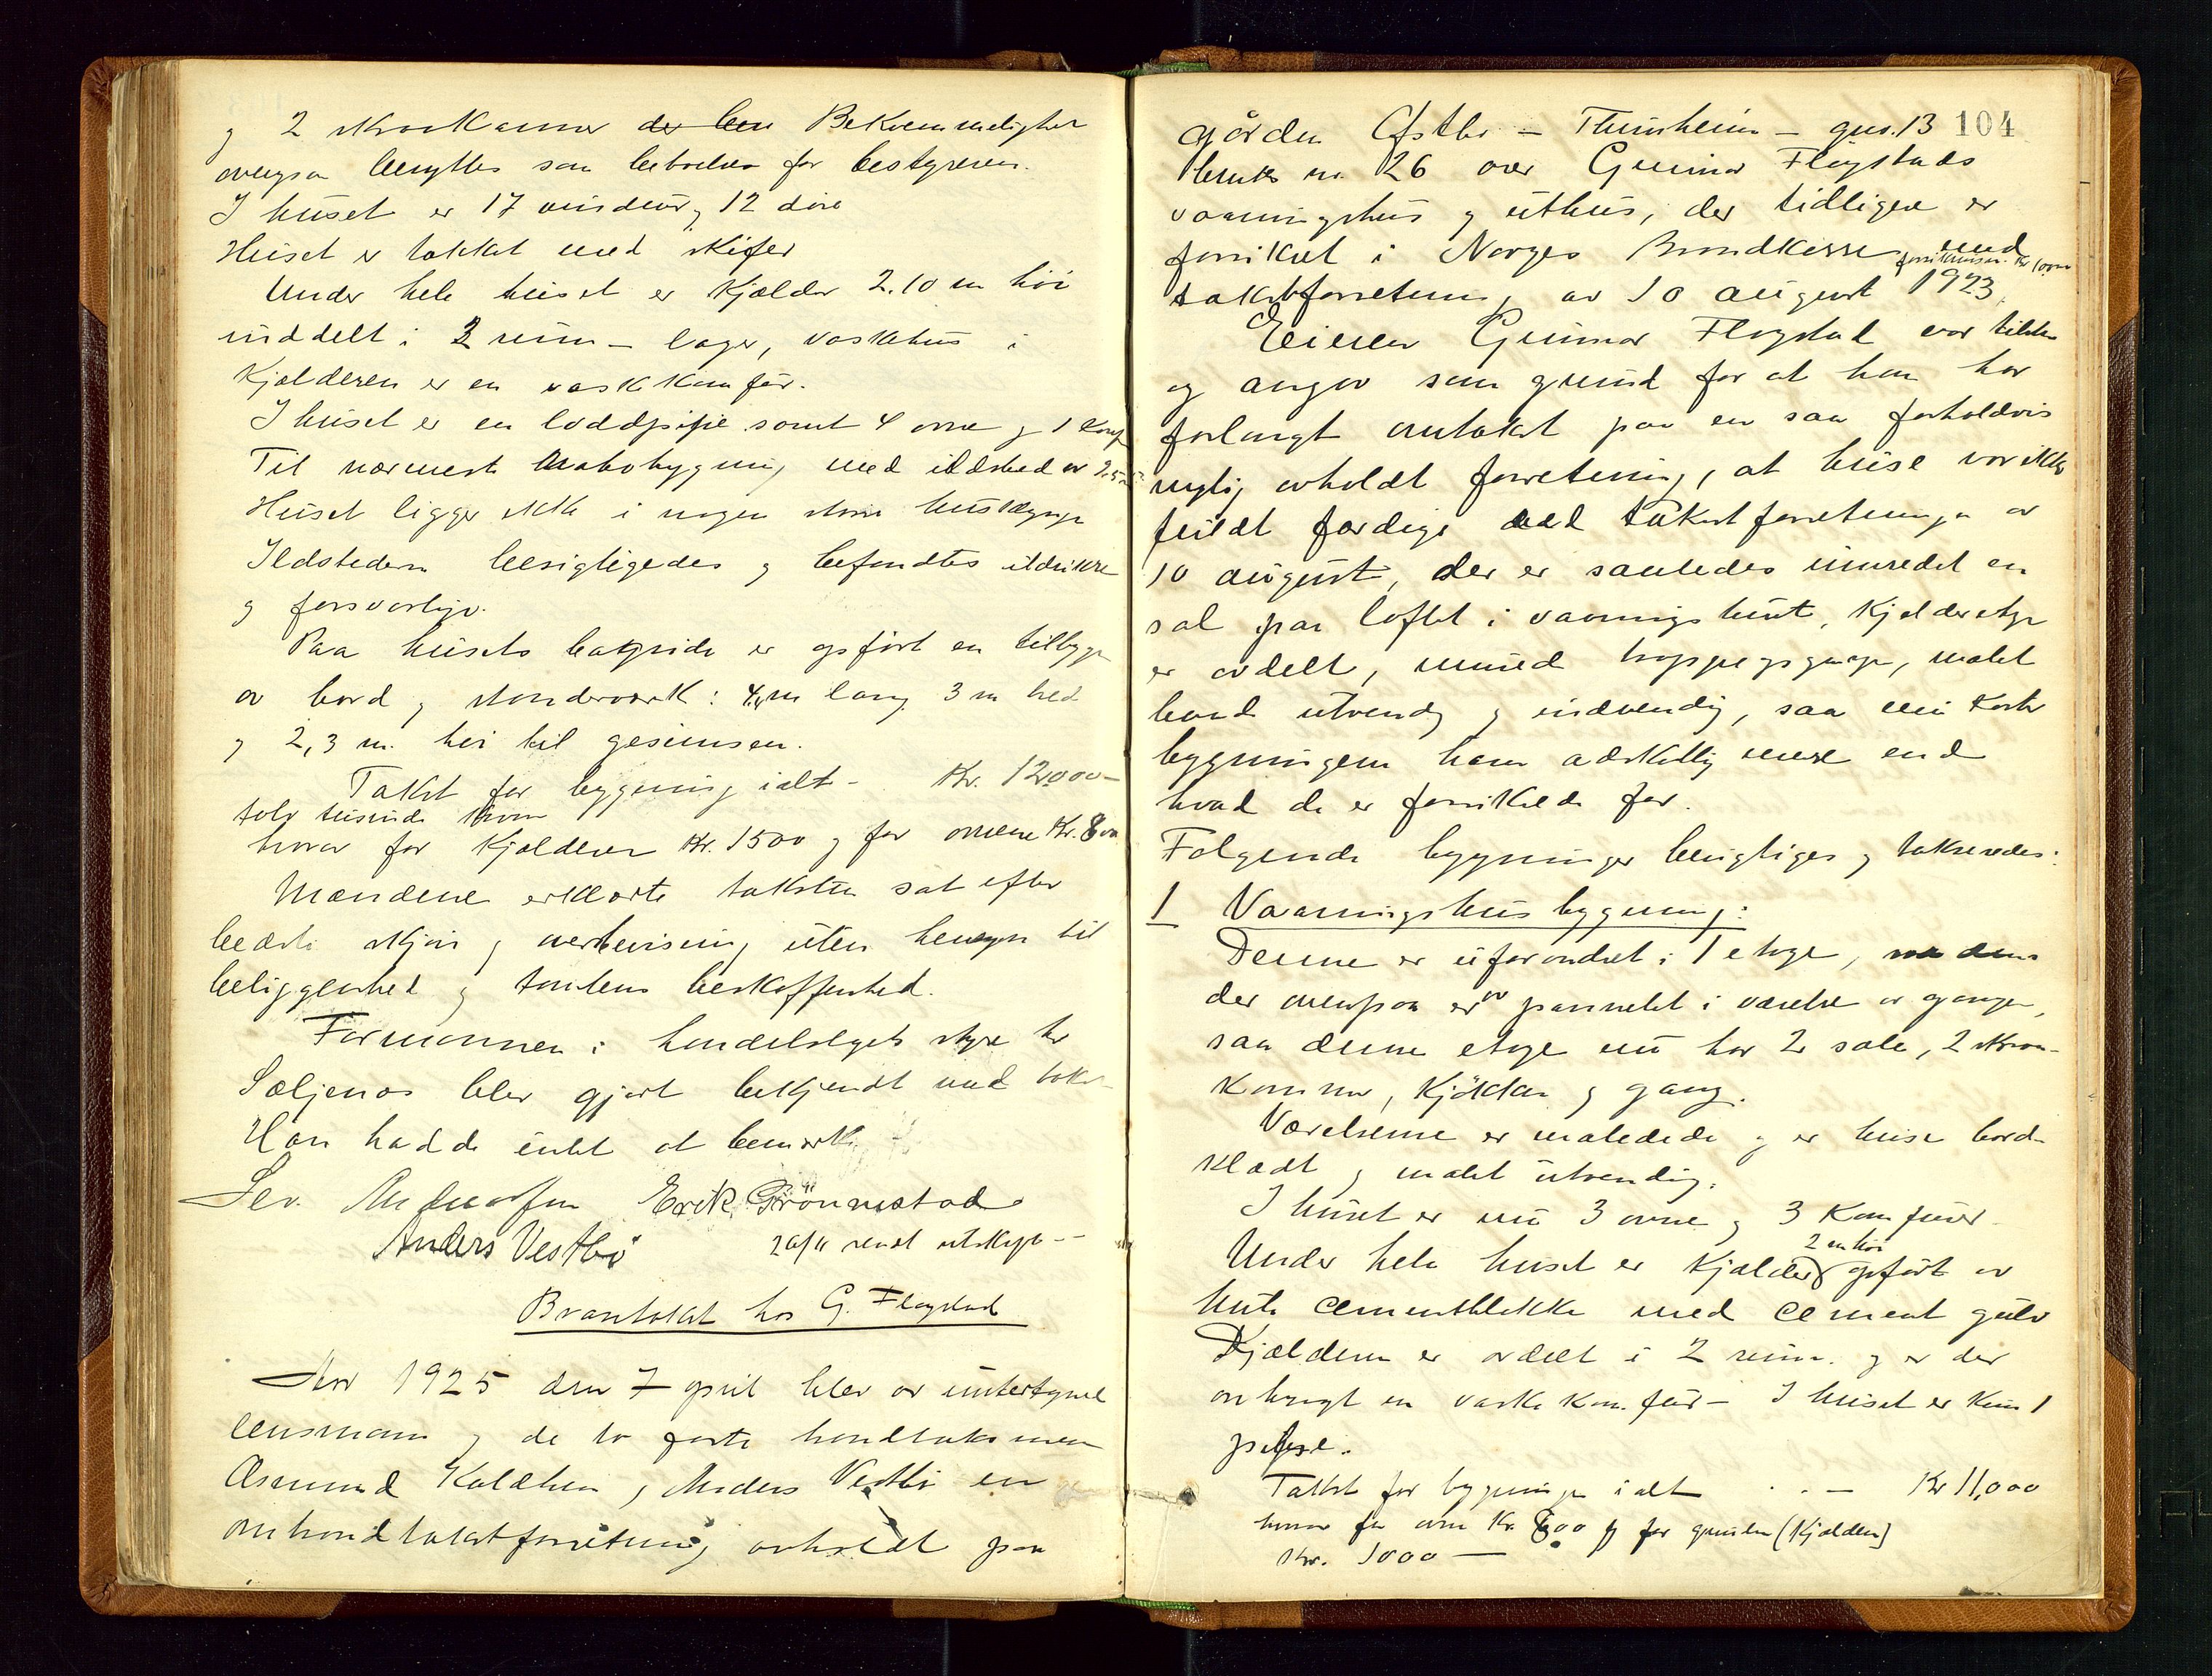 og 2 skraakamre der ben Bekvemmeligheter
ovenpaa benyttes som beboelse for bestyreren.
I huset er 17 vinduer og 12 döre
Huset er tækket med skifer
Under hele huset er Kjælder 2.10 m höi
inddelt i 2 rum – lager, vaskehus i
Kjælderen er en vaskkomfür.
I huset er en loddpipe samt 4 ovne og 1 Komf
Til nærmeste Nabobygning med ildsted er 25 m
Huset ligger ikke i nogen större husklynge
Ildstederne besigtigedes og befandtes ildsikre
og forsvarlige.
Paa husets bakside er opfört en tilbygn
av bord og stenderværk: 4 m lang 3 m bred
og 2,3 m. höi til gesimsen.
Takst for bygning ialt – Kr. 12000–
tolv tusinde Kroner
hvorav for Kjælderen Kr. 1500 og for ovnene Kr. 800
Mændene erklærte taksten sat efter
bedste skjön og overbevisning uten hensyn til
beliggenhed og tomtens beskaffenhed.
Formannen i handelslagets styre hr
Sæljenæs blev gjort bekjendt med takst
Han hadde intet at bemerke
Sev. Andersen Erik Grönnestad
Anders Vestbö 20/11 sendt utskrift –
Brantakst hos G. Flögstad
Aar 1925 den 7 april blev av undertegnede
lensmann og de to faste brandtaksmen
Asmund Kaldheim og Anders Vestbö en
ombrandtakstforretning avholdt paa
104
gården Østbö – Thunheim – gnr. 13
bruks nr. 26 over Gunnar Flögstads
vaaningshus og uthus, der tidligere er
forsikret i Norges Brandkasse med
forsikringss. Kr 10000
takstforretning av 10 august 1923.
Eieren Gunnar Flögstad var tilstede
og angav som grund for at han har
forlangt omtakst paa en saa forholdsvis
nylig avholdt forretning, at huse var ikke
fuldt færdige ved takstforretningen av
10 august, der er saaledes innredet en
sal paa loftet i vaaningshuset, Kjelderetage
er avdelt, innred trappeopgange, malet
baade utvendig og indvendig, saa nu koster
bygningene ham adskillig mere end
hvad de er forsikrede for.
Følgende bygninger besigtiges og taksteredes:
1 Vaaningshusbygning:
Denne er uforandret i 1 etage, medens
der ovenpaa er panelet i værelse og gangen,
saa denne etage nu har 2 sale, 2 skraa-
kammer, Kjökken og gang.
Værelserne er maledede og er huse bord-
klædt og malet utvendig.
I huset er nu 3 ovne og 3 Komfurer.
2 m höi
Under hele huset er Kjælder opfört av
hule cementblokke med cement gulv
Kjælderen er avdelt i 2 rum. og er der
anbragt en vaske kom.für – I huset er kun 1
pipe.
Takst for bygningen ialt . . – Kr 11,000
hvorav for ovne Kr. 600 og for grunden (Kjælderen)
Kr. 1000 –